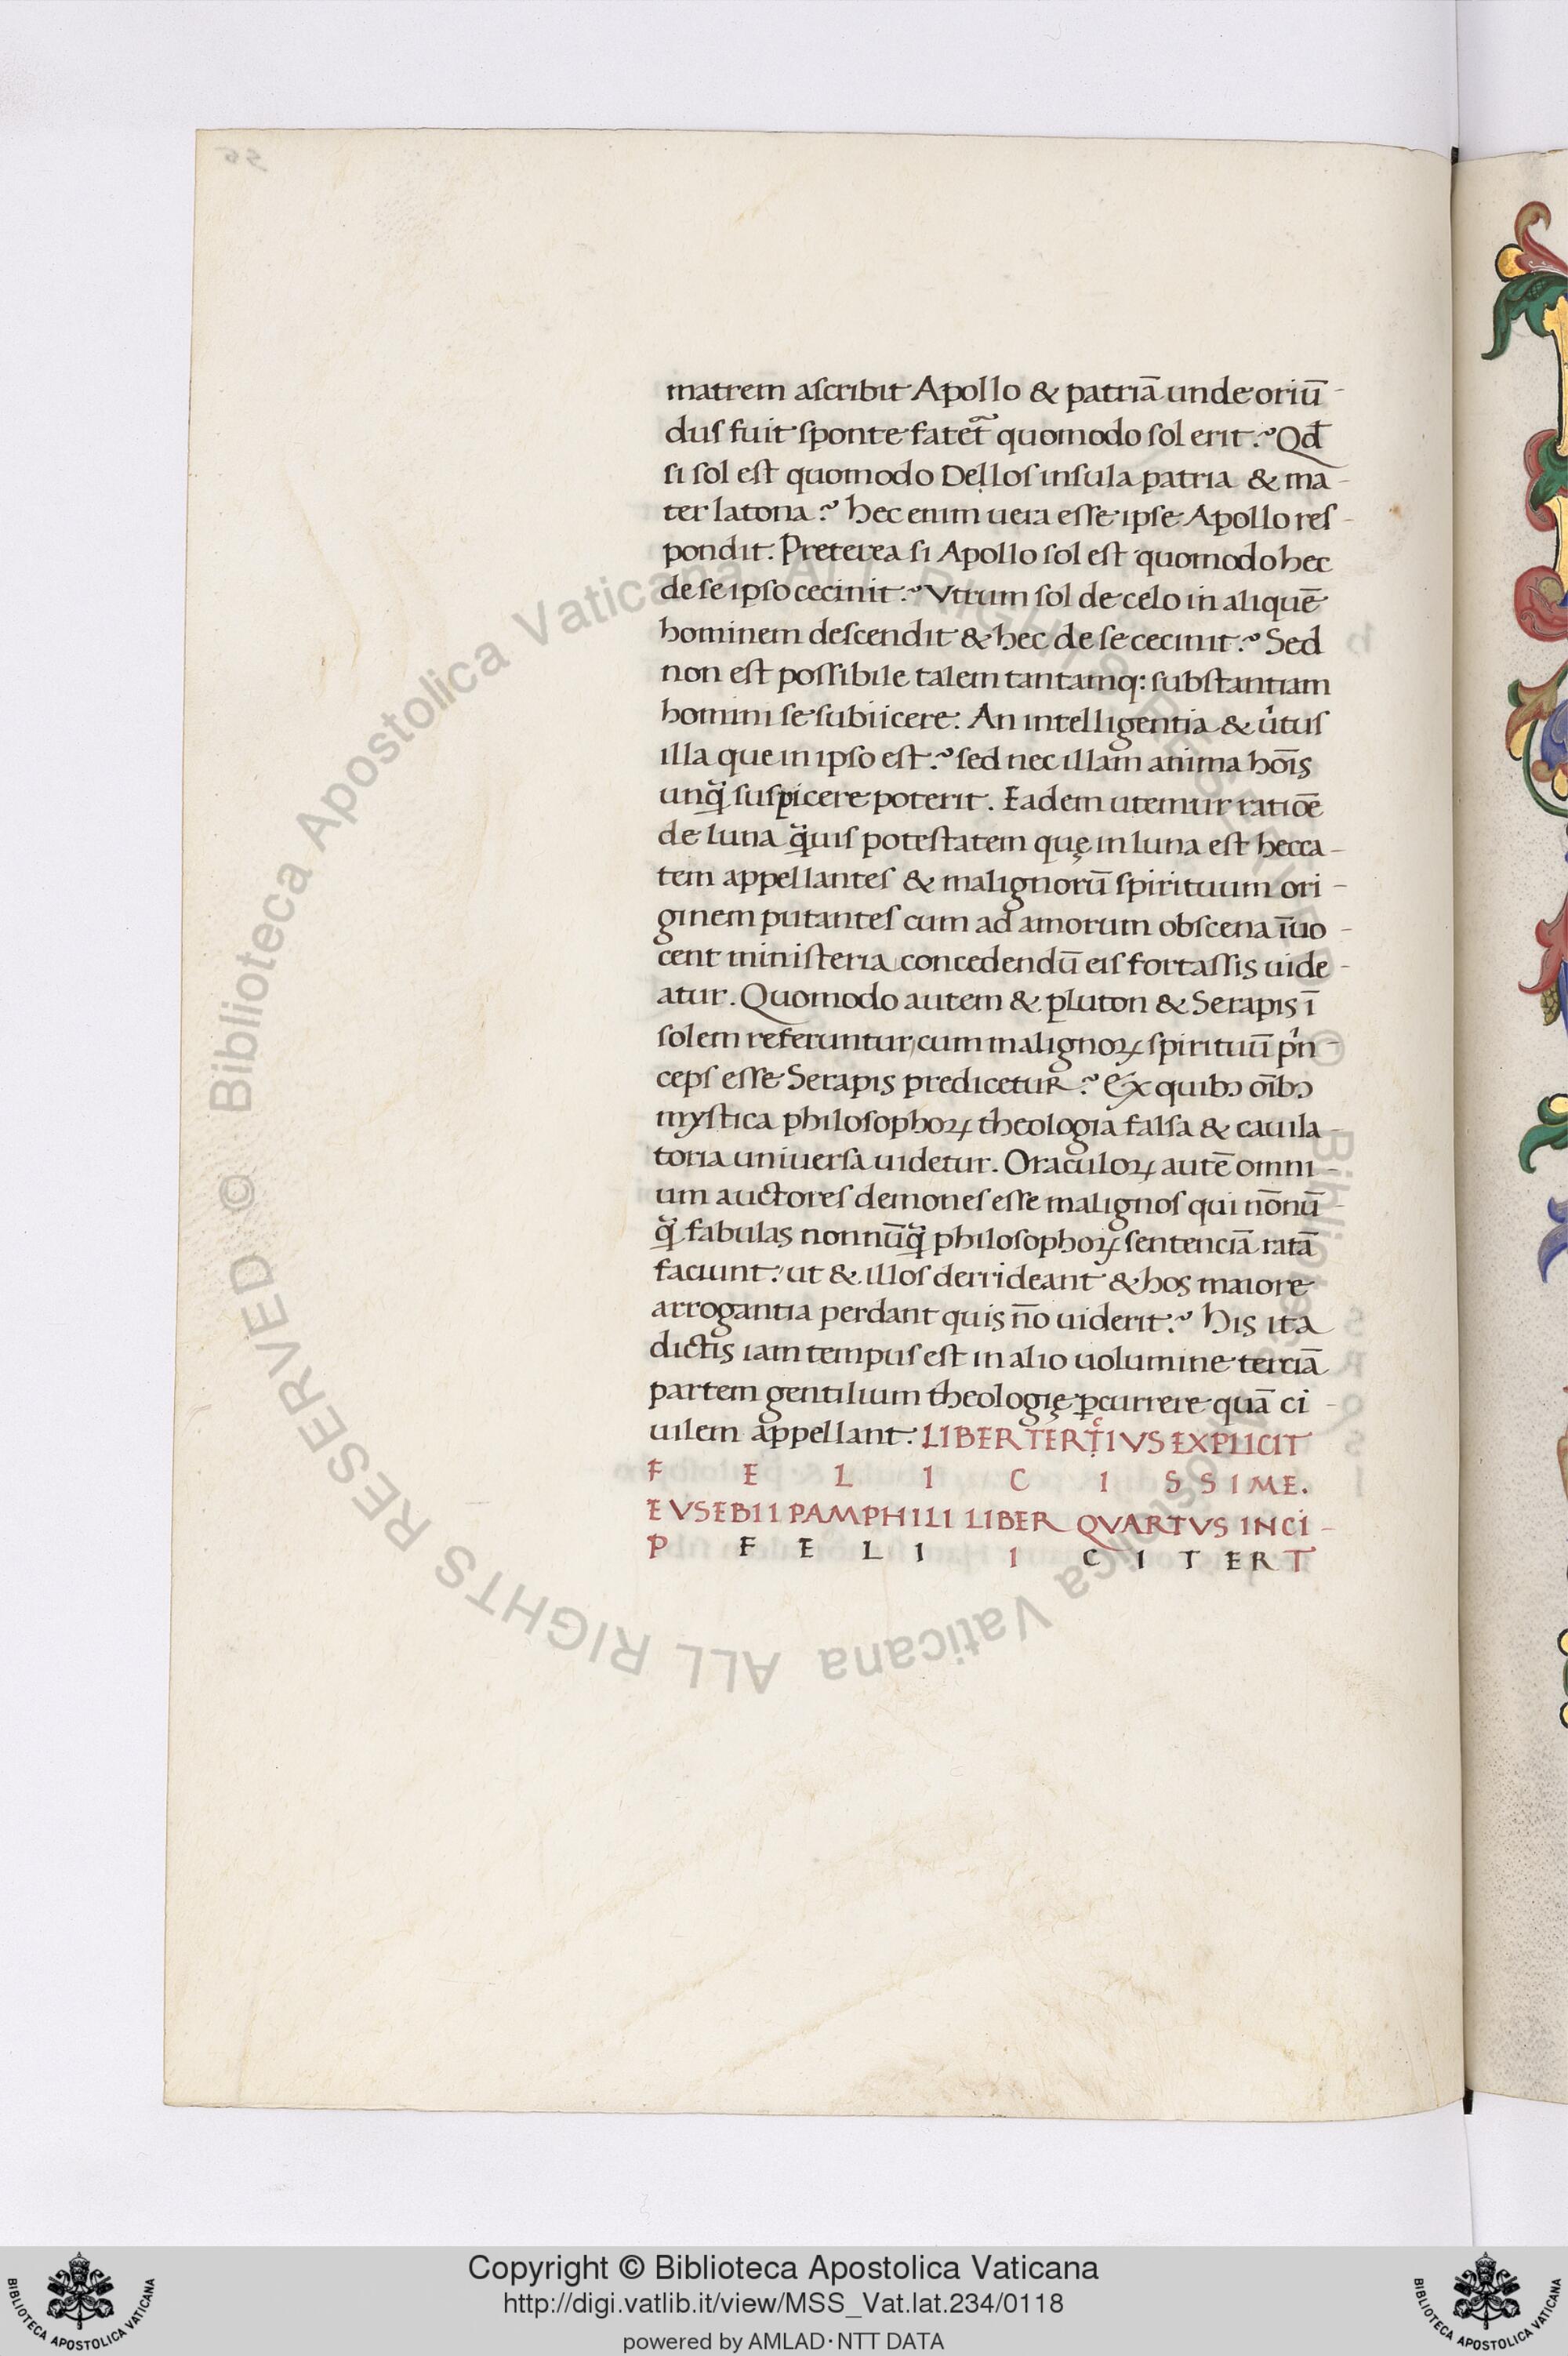 matrem ascribit Apollo & patriā unde oriū-
dus fuit sponte fatet᷑ quomodo sol erit? Qđ
si sol est quomodo Dellos insula patria & ma-
ter latona? hec enim uera esse ipse Apollo res-
pondit. Preterea si Apollo sol est quomodo hec
de se ipso cecinit? Vtrum sol de celo in aliquē
hominem descendit & hec de se cecinit? Sed
non est possibile talem tantamq: substantiam
homini se subiicere. An intelligentia & uͥtus
illa que in ipso est? sed nec illam anima hoīs
unqᷓ suspicere poterit. Eadem utemur ratiōe
de luna qᷓuis potestatem quę in luna est hecca-
tem appellantes & malignorū spirituum ori-
ginem putantes cum ad amorum obscena īuo-
cent ministeria concedendū eis fortassis uide-
atur. Quomodo autem & pluton & Serapis ī
solem referuntur, cum malignoꝝ spirituū pͥn-
ceps esse Serapis predicetur? Ex quibꝰ oībꝰ
mystica philosophoꝝ theologia falsa & cauila-
toria uniuersa uidetur. Oraculoꝝ autē omni-
um auctores demones esse malignos qui nōnū-
qᷓ fabulas nonnūqᷓ philosophoꝝ sentenciā ratā
faciunt: ut & illos derrideant & hos maiore
arrogantia perdant quis nō uiderit? His ita
dictis iam tempus est in alio uolumine terciā
partem gentilium theologię ꝑcurrere quā ci-
uilem appellant. LIBER TERTͨIVS EXPLICIT
F E L I C I S S I M E.
EVSEBII PAMPHILI LIBER QVARTVS INCI-
P F E L I I C I T E R T
56
© Biblioteca Apostolica Vaticana ALL RIGHTS RESERVED © Biblioteca Apostolica Vaticana ALL RIGHTS RESERVED
Copyright © Biblioteca Apostolica Vaticana
http://digi.vatlib.it/view/MSS_Vat.lat.234/0118
powered by AMLAD·NTT DATA
BIBLIOTECA APOSTOLICA VATICANA
BIBLIOTECA APOSTOLICA VATICANA